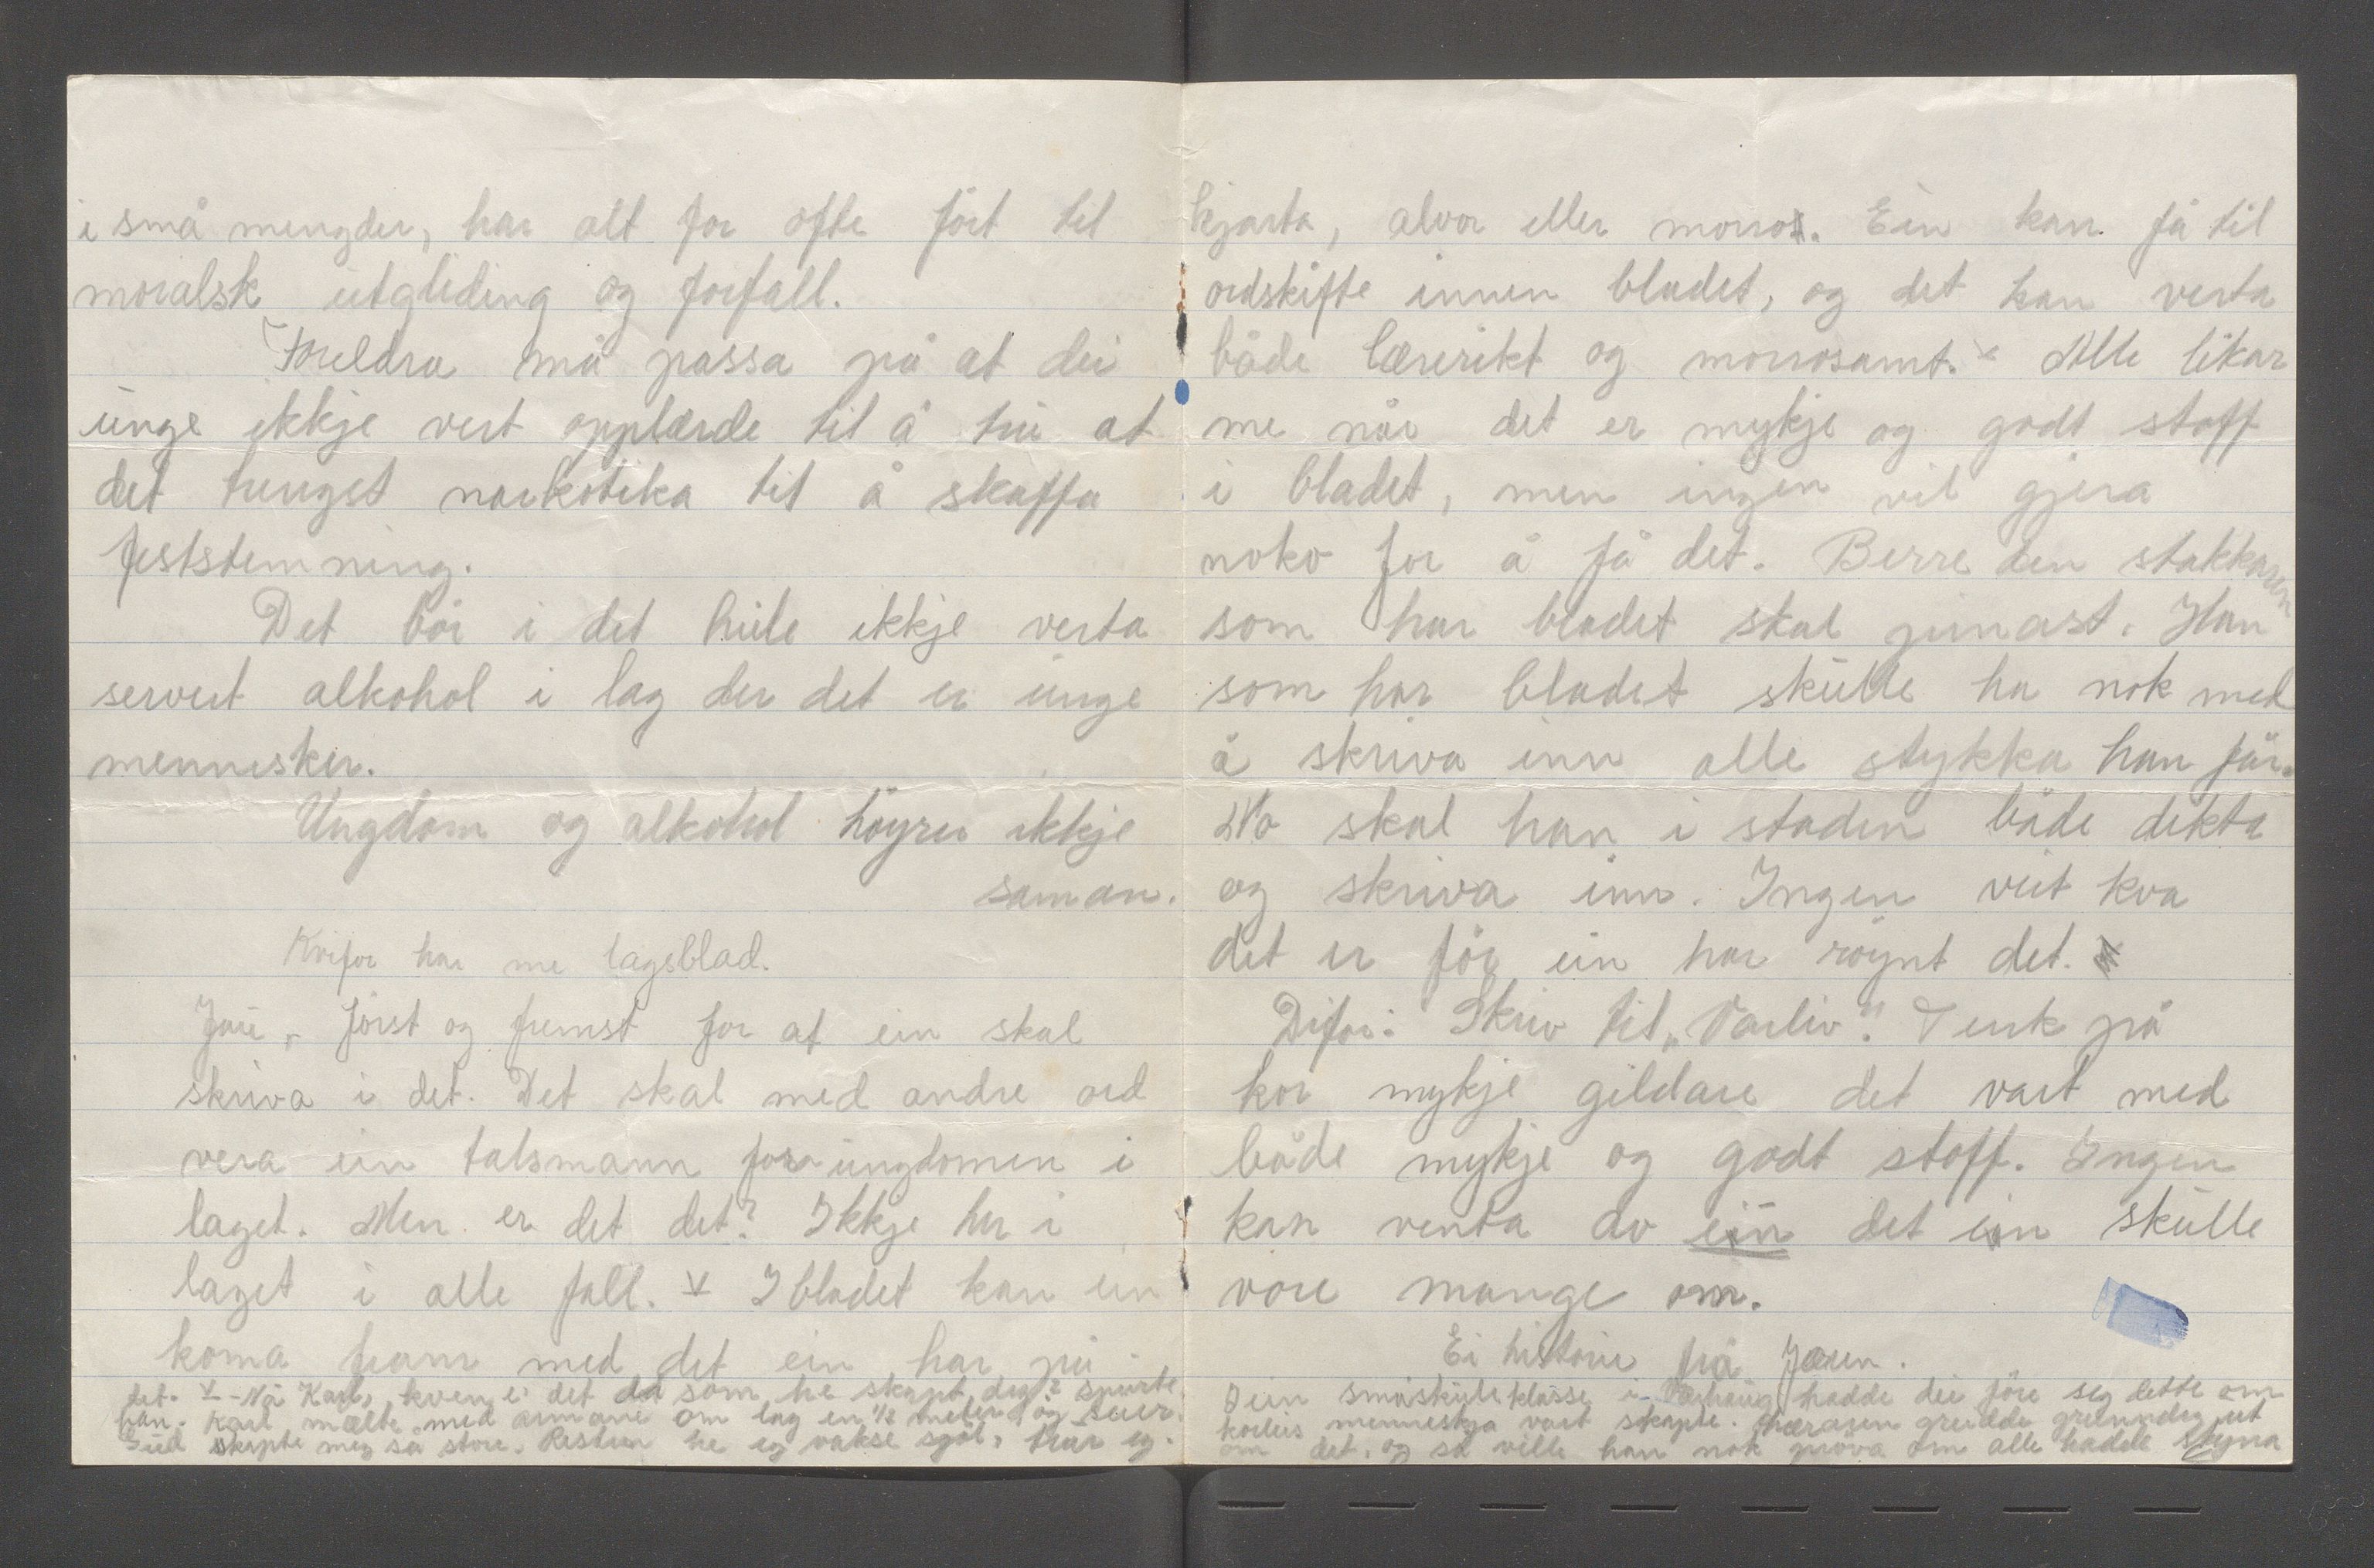 i små mengder, har alt for ofte ført til
moralsk utgliding og forfall.
Foreldra må passa på at dei
unge ikkje vert opplærde til å tru at
det trengst narkotika til å skaffa
feststemning.
Det bör i det heile ikkje verta
servert alkohol i lag der det er unge
mennesker.
Ungdom og alkohol höyrer ikkje
saman.
Kvifor har me lagsblad.
Jau, först og fremst for at ein skal
skriva i det. Det skal med andre ord
vera ein talsmann for ungdomen i
laget. Men er det det? Ikkje her i
laget i alle fall. I bladet kan ein
koma fram med det ein har på
hjarta, alvor eller morro. Ein kan få til
ordskifte innen bladet, og det kan verta
både lærerikt og morrosamt. Alle likar
me når det er mykje og godt stoff
i bladet, men ingen vil gjera
noko for å få det. Berre den stakkaren
som har bladet skal pinast. Han
som har bladet skulle ha nok med
å skriva inn alle stykka han får.
No skal han i staden både dikta
og skriva inn. Ingen veit kva
det er för ein har röynt det.
Difor: Skriv til „Varliv". Tenk på
kor mykje gildare det vart med
både mykje og godt stoff. Ingen
kan venta av ein det ein skulle
vore mange om.
Ei historie frå Jæren.
I ein småskuleklasse i Varhaug hadde dei före seg dette om
korleis menneskja vart skapte. Læraren greidde grunndig ut
om det, og så ville han nok pröva om alle hadde skyna
det. - Nå Karl, kven ei det då som he skapt deg? spurte
han. Karl mælte med armane om lag en 1/2 meter og seier.
Gud skapte meg så store. Resten he eg vakse sjöl, trur eg.